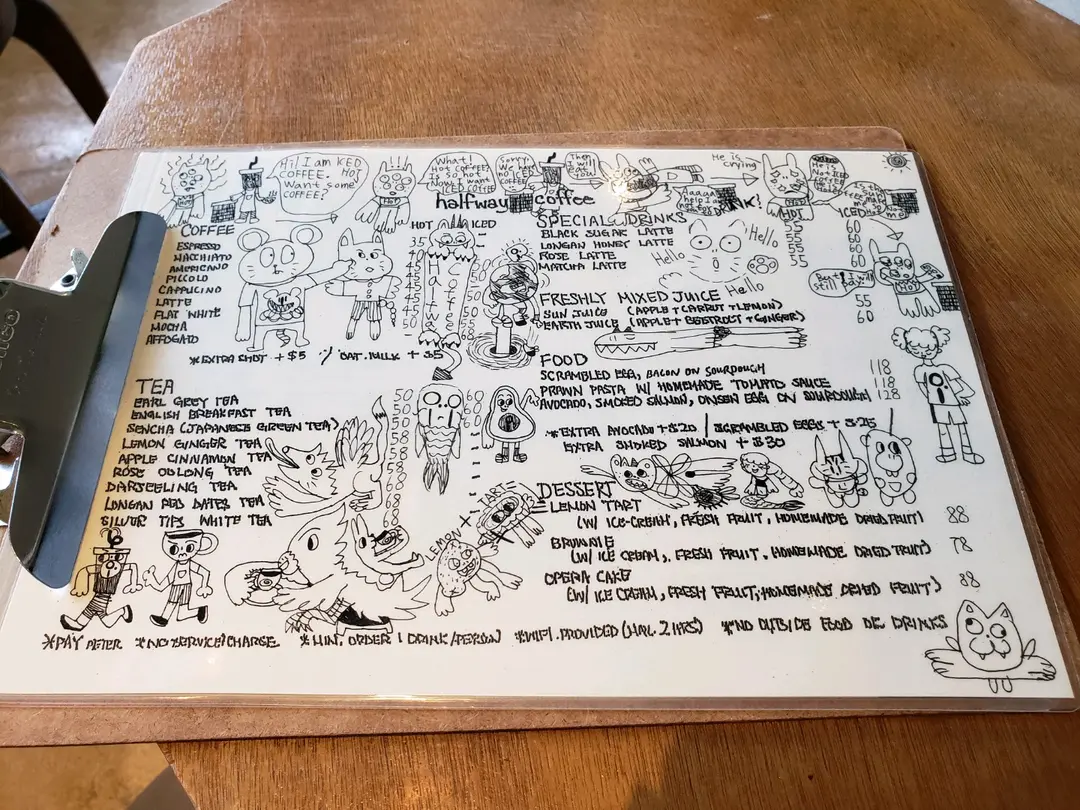 Hi! I am RED
HOT
COFFEE.
Want some
COFFEE?
What!
Hot COFFEE
is so hot
Now I want
ICED COFFEE
Sorry.
We have
no ICED
COFFEE
Then
I will
eat you
He is
crying
He is
Not ICED
halfway coffee
COFFEE
HOT ICED
ESPRESSO 35
MACCHIATO
AMERICANO
PICCOLO
CAPPUCINO
LATTE
FLAT WHITE
MOCHA
AFFOGATO
*EXTRA SHOT + $5 / OAT MILK + $5
TEA
EARL GREY TEA 50 60
ENGLISH BREAKFAST TEA 50 60
SENCHA (JAPANESE GREEN TEA) 50 60
LEMON GINGER TEA 58
APPLE CINNAMON TEA 58
ROSE OOLONG TEA 58
DARJEELING TEA 58
LONGAN RED DATES TEA 68
SILVER TIPS WHITE TEA 68
SPECIAL DRINKS
HOT ICED
BLACK SUGAR LATTE 55 60
LONGAN HONEY LATTE 55 60
ROSE LATTE 55 60
MATCHA LATTE 55 60
Hello
Hello
Hello
But I will
still pay!!
FRESHLY MIXED JUICE
SUN JUICE (APPLE + CARROT + LEMON) 55
EARTH JUICE (APPLE + BEETROOT + GINGER) 60
FOOD
SCRAMBLED EGG, BACON ON SOURDOUGH 118
PRAWN PASTA W/ HOMEMADE TOMATO SAUCE 118
AVOCADO, SMOKED SALMON, ONSEN EGG ON SOURDOUGH 128
*EXTRA AVOCADO + $20 / SCRAMBLED EGGS + $25
EXTRA SMOKED SALMON + $30
LEMON X TART
DESSERT
LEMON TART
(W/ ICE-CREAM, FRESH FRUIT, HOMEMADE DRIED FRUIT) 88
BROWNIE
(W/ ICE CREAM, FRESH FRUIT, HOMEMADE DRIED FRUIT) 78
OPERA CAKE
(W/ ICE CREAM, FRESH FRUIT, HOMEMADE DRIED FRUIT) 88
*PAY AFTER *NO SERVICE CHARGE *MIN. ORDER 1 DRINK/PERSON *WIFI PROVIDED (MAX. 2 HRS) *NO OUTSIDE FOOD OR DRINKS